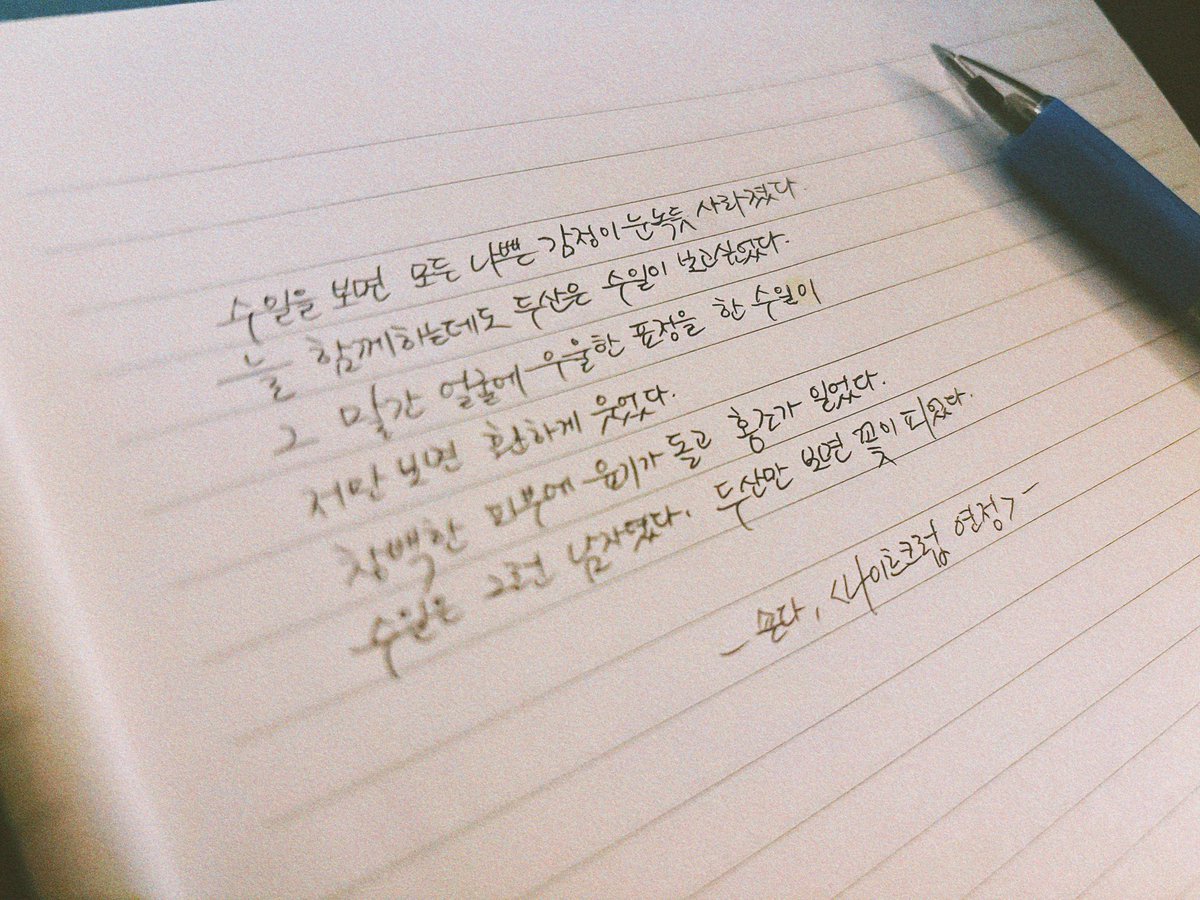 수일을 보면 모든 나쁜 감정이 눈녹듯 사라졌다.
늘 함께하는데도 두산은 수일이 보고싶었다.
그 말간 얼굴에 우울한 표정을 한 수일이
저만 보면 환하게 웃었다.
창백한 피부에 윤기가 돌고 홍조가 일었다.
수일은 그런 남자였다. 두산만 보면 꽃이 피었다.
- 문다, <나이트크럽 연정> -